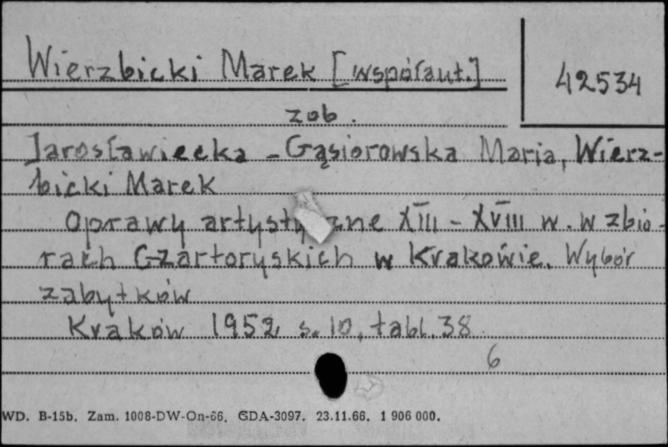 Wierzbicki Marek [współaut.]
42534
zob.
Jarosławiecka-Gąsiorowska Maria, Wierz-
bicki Marek
Oprawy artystyczne XIII - XVIII w. w zbio-
rach Czartoryskich w Krakowie. Wybór
zabytków
Kraków 1952 s. 10, tabl. 38
6
WD. B-15b. Zam. 1008-DW-On-66. GDA-3097. 23.11.66. 1 906 000.